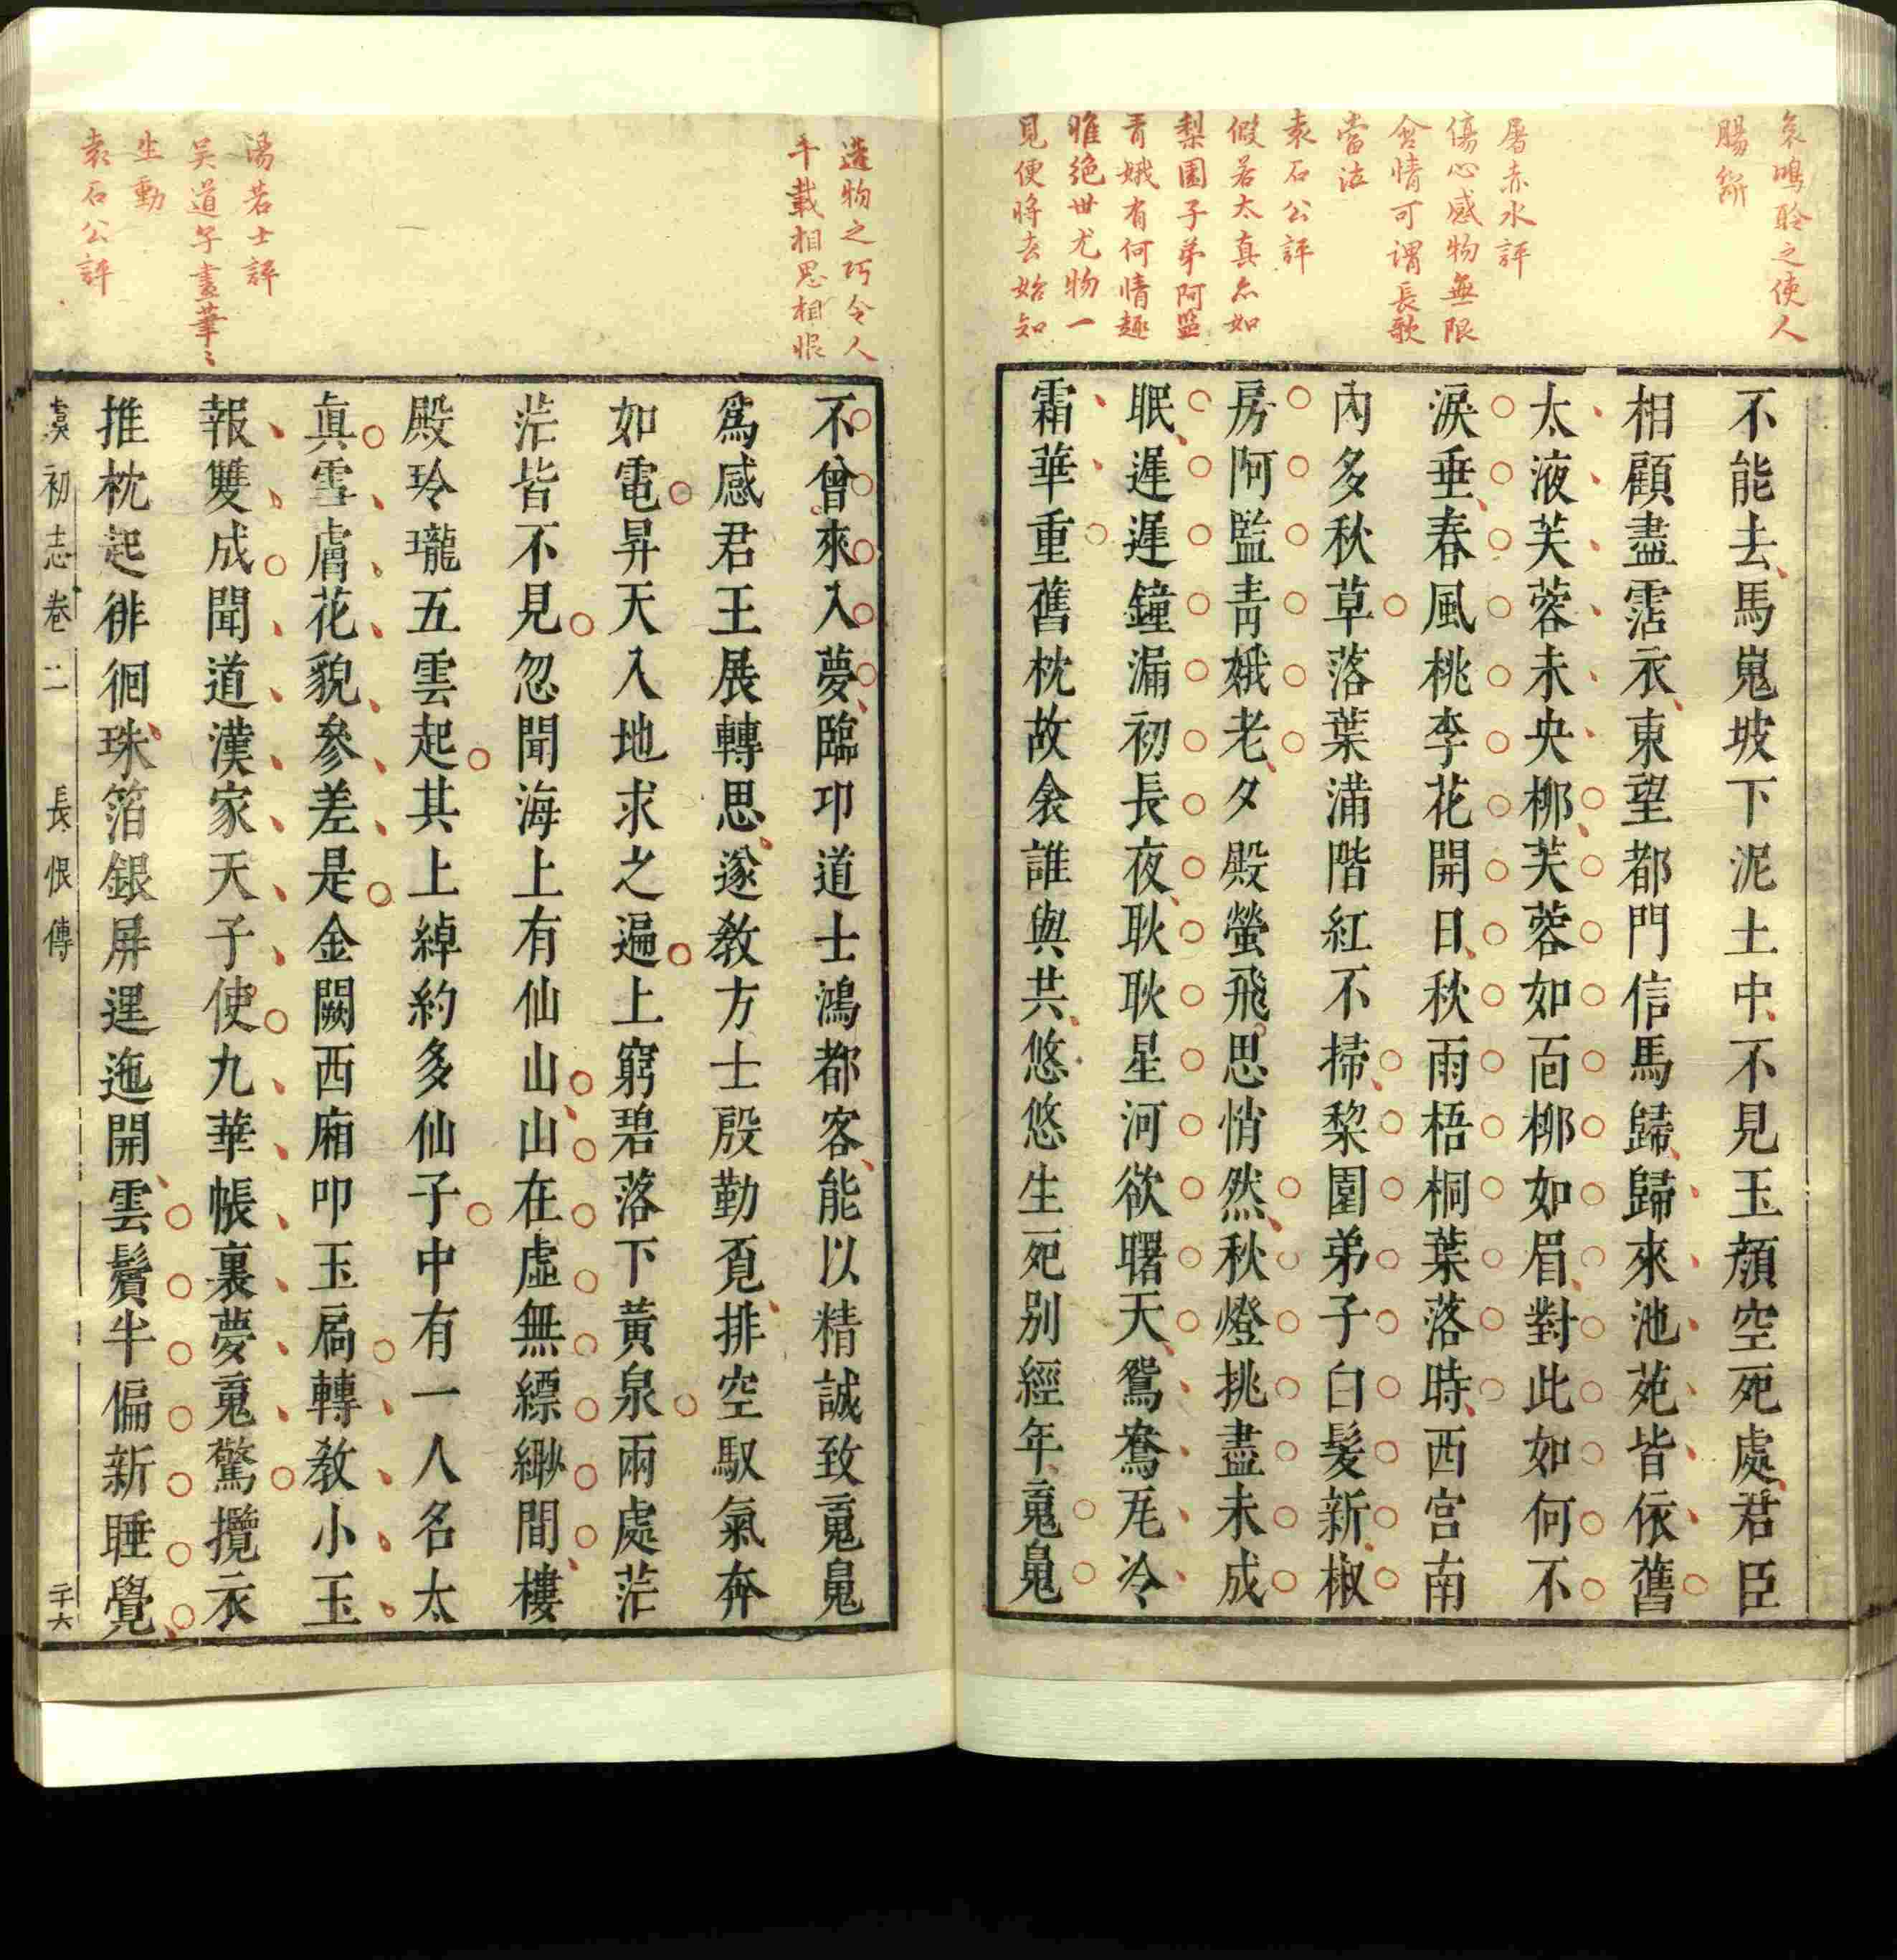 哀鳴聆之使人
腸斷
屠赤水評
傷心感物無限
含情可謂長歌
當泣
袁石公評
假若太真亦如
梨園子弟阿監
青娥有何情趣
惟絕世尤物一
見便將去始知
不能去馬嵬坡下泥土中不見玉顔空死處君臣
相顧盡霑衣東望都門信馬歸歸來池苑皆依舊
太液芙蓉未央柳芙蓉如面柳如眉對此如何不
淚垂春風桃李花開日秋雨梧桐葉落時西宮南
內多秋草落葉滿階紅不掃梨園弟子白髮新椒
房阿監青娥老夕殿螢飛思悄然秋燈挑盡未成
眠遲遲鐘漏初長夜耿耿星河欲曙天鴛鴦瓦冷
霜華重舊枕故衾誰與共悠悠生死别經年䰟䰟
造物之巧令人
千載相思相恨
湯若士評
吳道子畫筆〻
生動
袁石公評
不曾來入夢臨卭道士鴻都客能以精誠致䰟䰟
爲感君王展轉思遂教方士殷勤覔排空馭氣奔
如電昇天入地求之遍上窮碧落下黃泉兩處茫
茫皆不見忽聞海上有仙山山在虛無縹緲間樓
殿玲瓏五雲起其上綽約多仙子中有一人名太
真雪膚花貌參差是金闕西廂叩玉扃轉教小玉
報雙成聞道漢家天子使九華帳裏夢䰟驚攬衣
推枕起徘徊珠箔銀屏邐迤開雲鬢半偏新睡覺
虞初志卷二 長恨傳 二十六